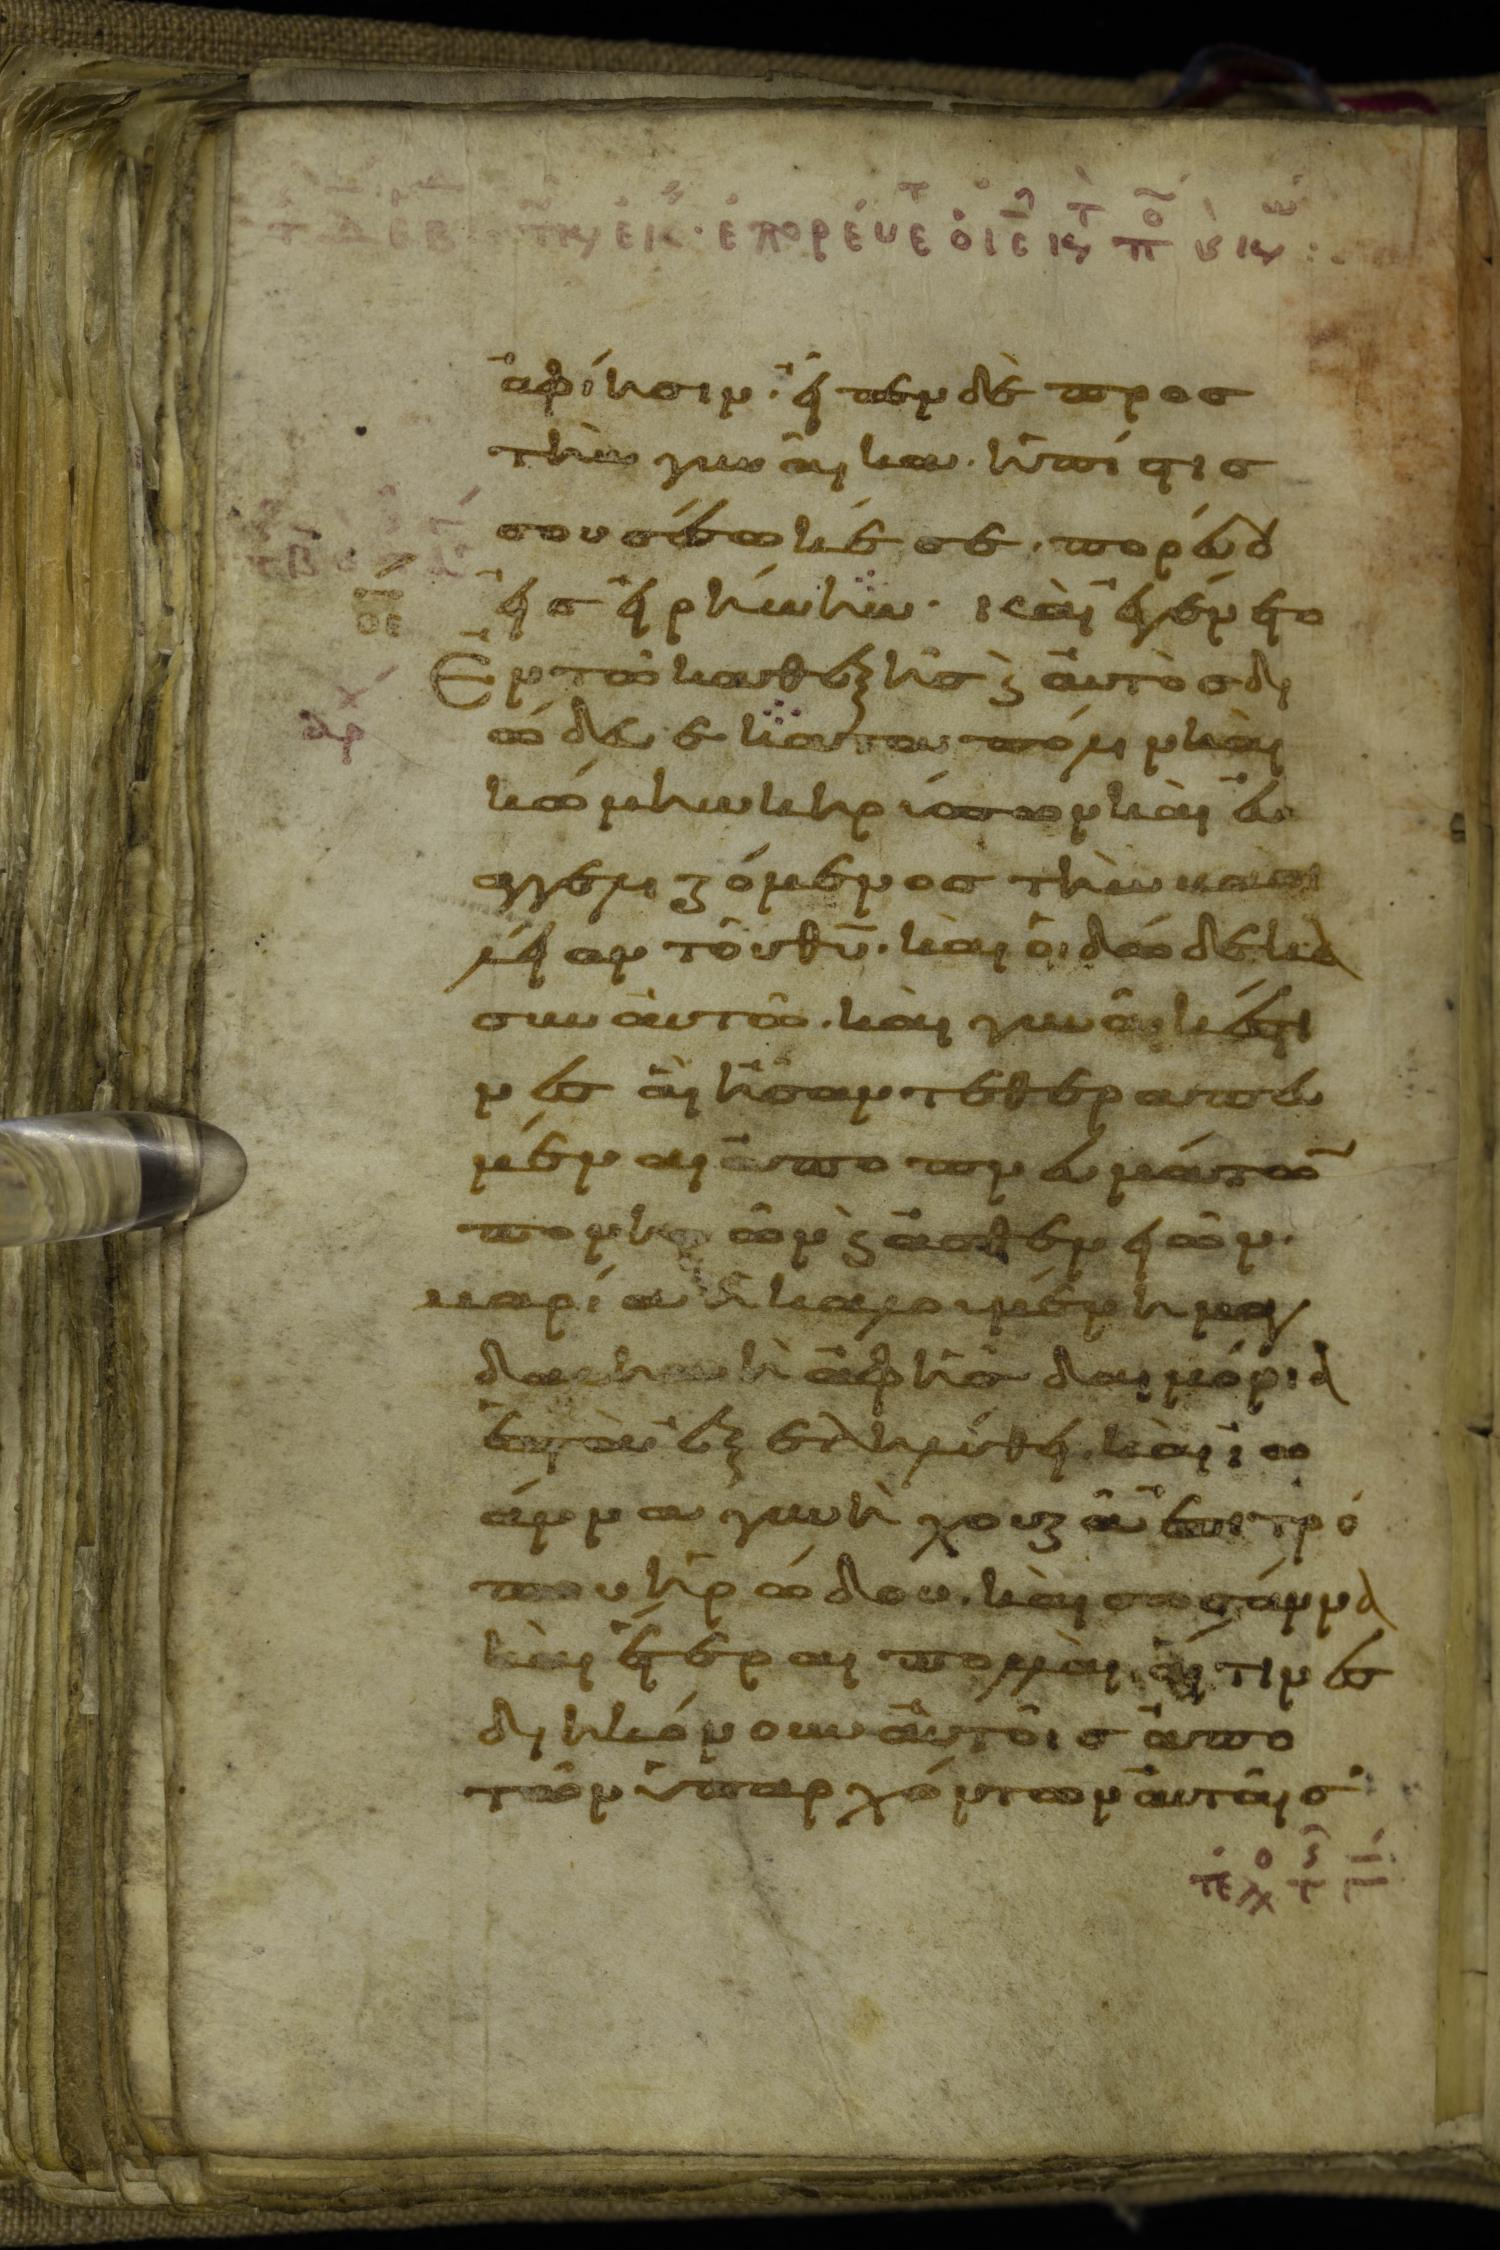 ἀφίησιν· εἶπεν δὲ προς
τὴν γυναῖκα· ἡ πίστις
σου σέσωκέ σε· πορεύου
εἰς εἰρήνην· καὶ ἐγένετο
Ἐν τῶ καθεξῆς καὶ ἀυτὸς δι
ώδευε κατα πόλιν καὶ
κώμην κηρύσσων καὶ εὐ
αγγελιζόμενος τὴν βασι
λείαν τοῦ θυ̅· καὶ οἱ δώδεκα
συν ἀυτῶ· καὶ γυναῖκές τι
νες ἃι ἦσαν τεθεραπευ
μέναι ἀπο πνευμάτω̅
πονηρῶν καὶ ἀσθενειῶν·
μαρία ἡ καλουμένη μαγ
δαληνὴ ἀφ ἧς δαιμόνια
ἑπτὰ ἐξεληλύθει· καὶ ιω
άννα γυνὴ χουζᾶ ἐπιτρό
που ἡρώδου· καὶ σοσάννα
καὶ ἕτεραι πολλαὶ αἵτινες
διηκόνουν ἀυτοῖς ἀπο
τῶν ὑπαρχόντων ἀυτᾶις·